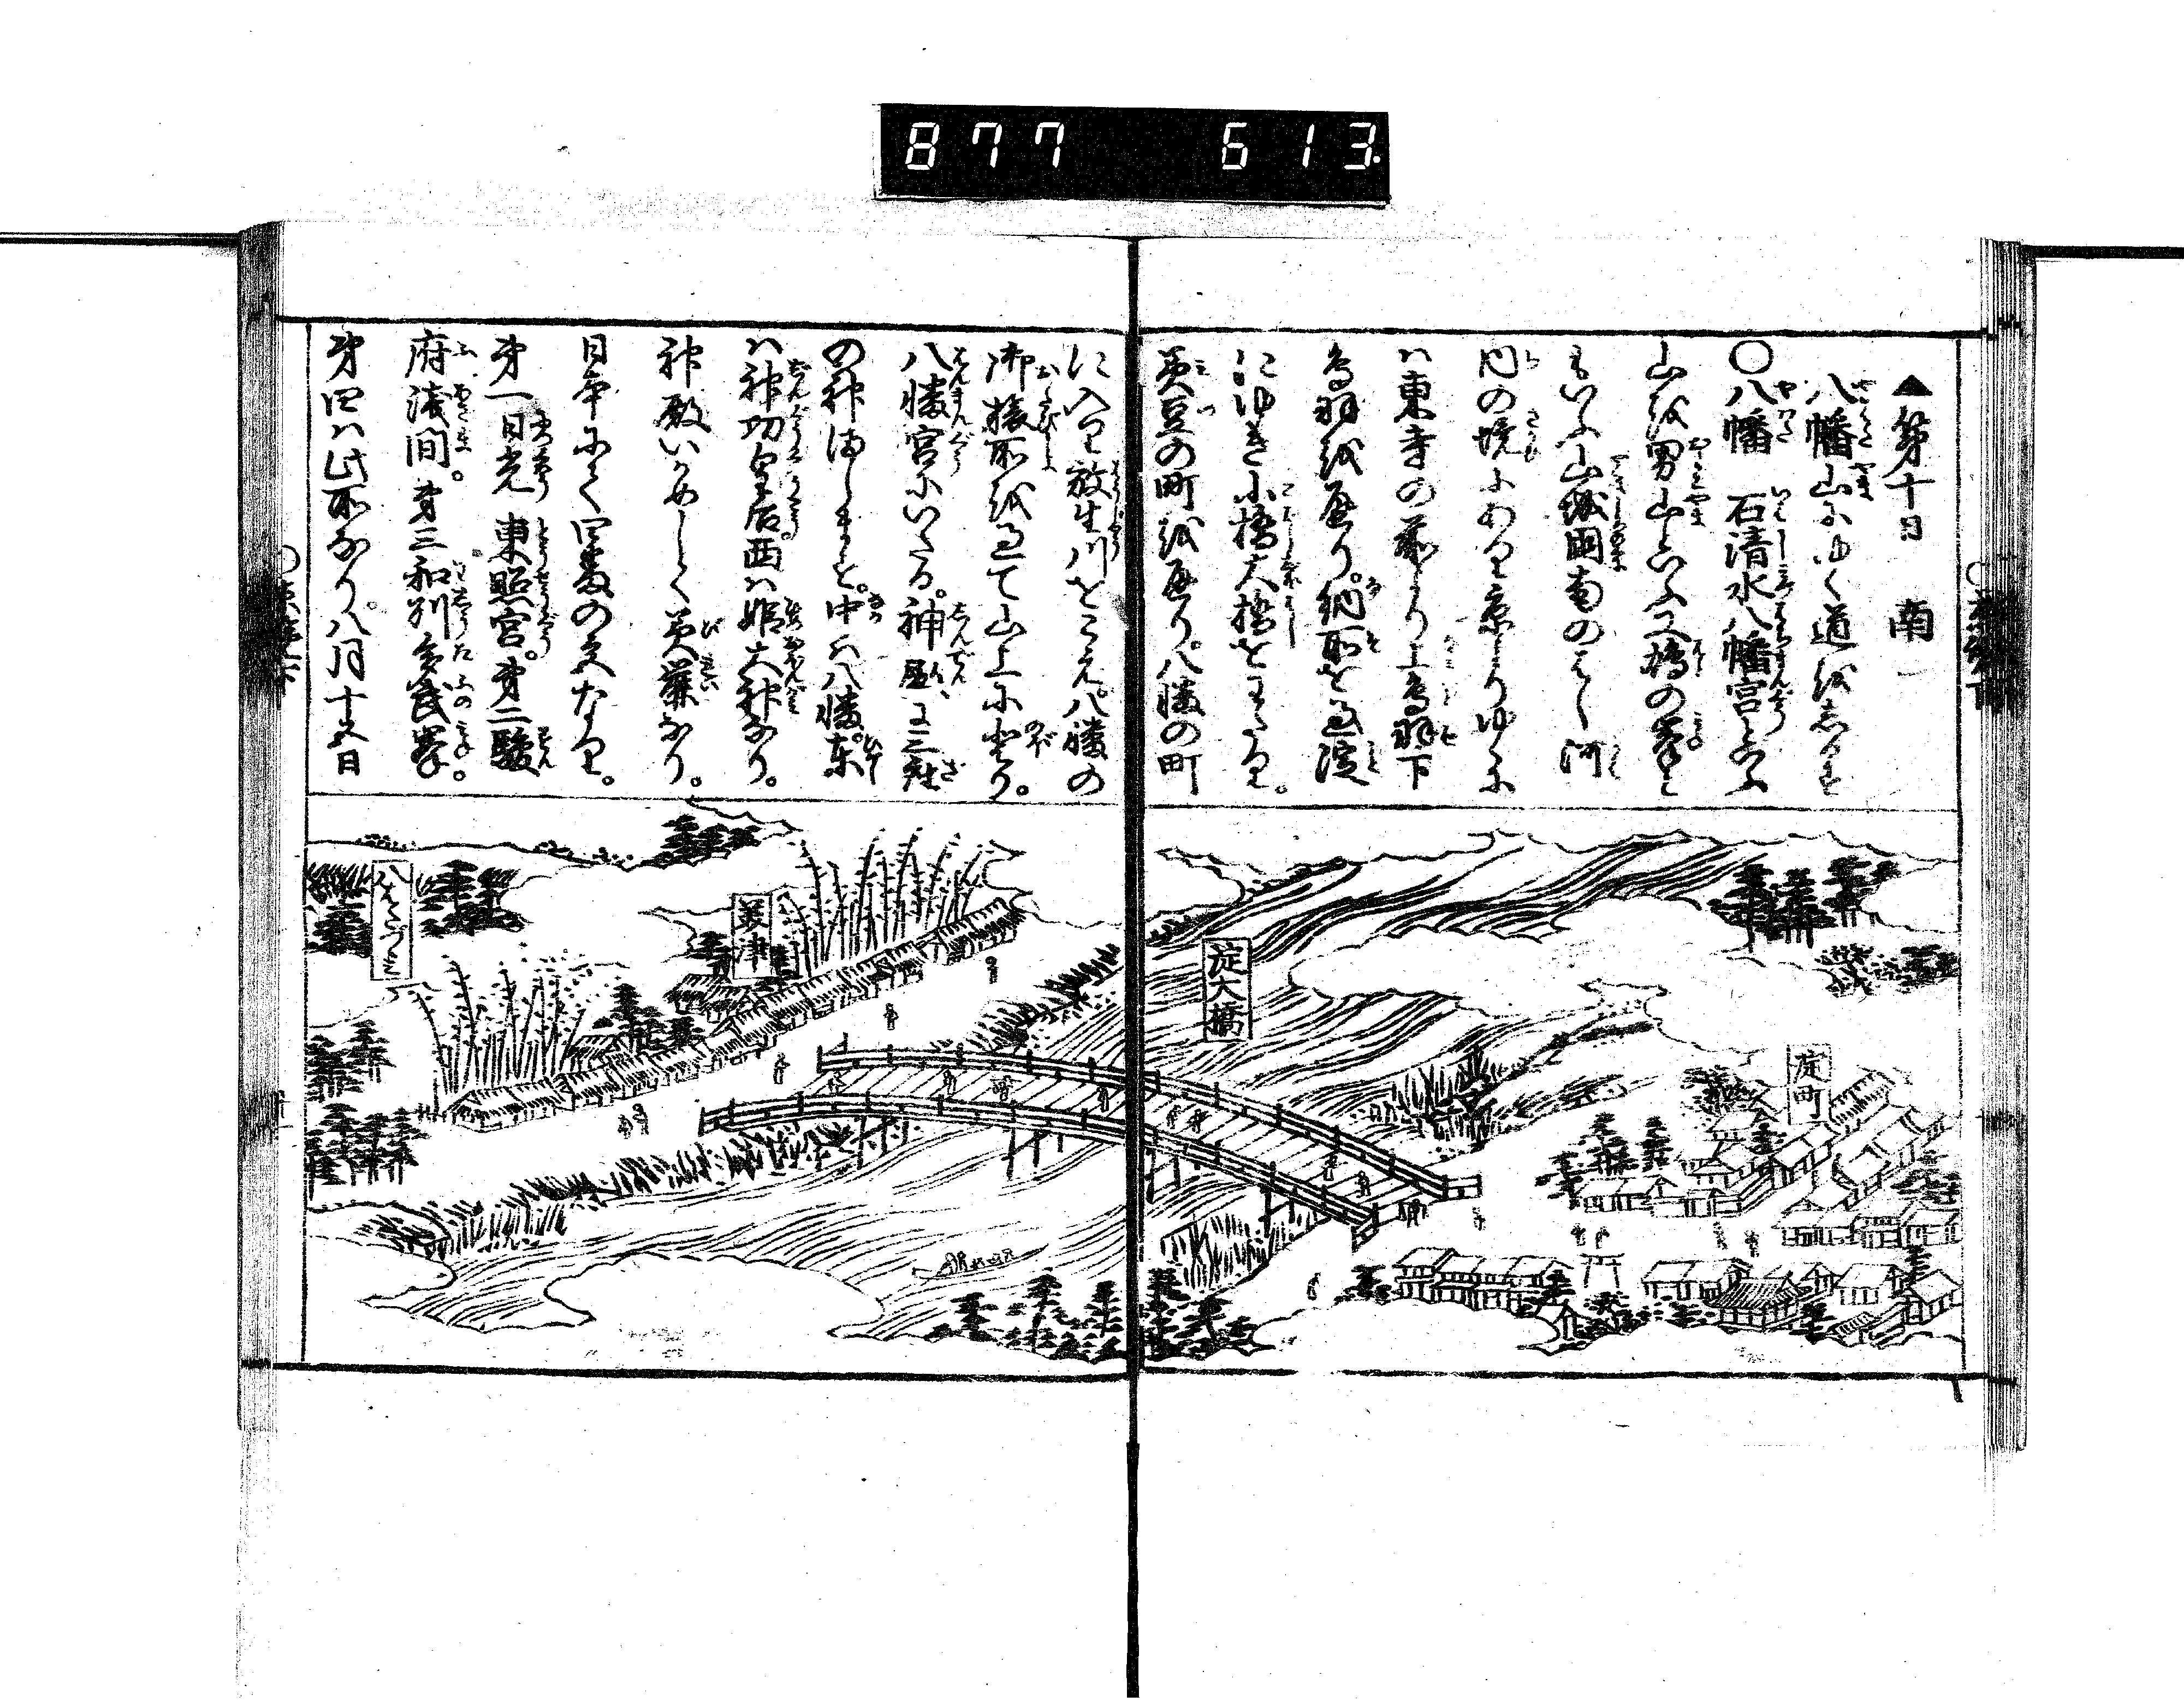 877 613.
▲第十日 南一
八幡山にゆく道をしるす
○八幡 石清水八幡宮といふ
山を男山といふ又鳩の峯と
もいふ山城国南のはし河
内の境にあり京よりゆくに
は東寺の前より上鳥羽下
鳥羽を通り。納所を過淀
にゆき小橋大橋をわたり。
美豆の町を通り。八幡の町
に入り放生川をこえ。八幡の
御旅所を過て山上に登り。
八幡宮にいたる。神殿に三社
の神まします。中は八幡。東
は神功皇后西は姫大神なり。
神殿いかめしく美麗なり。
日本にて四番の宮なり。
第一日光東照宮。第二駿
府浅間。第三和州多武峯。
第四は此所なり。八月十五日
淀大橋
淀町
美津